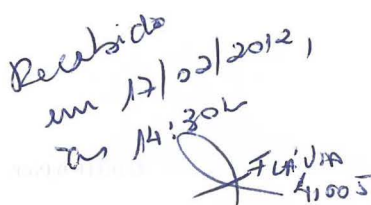 Recebido
em 17/02/2012,
às 14:30h
FLÁVIA
4,005